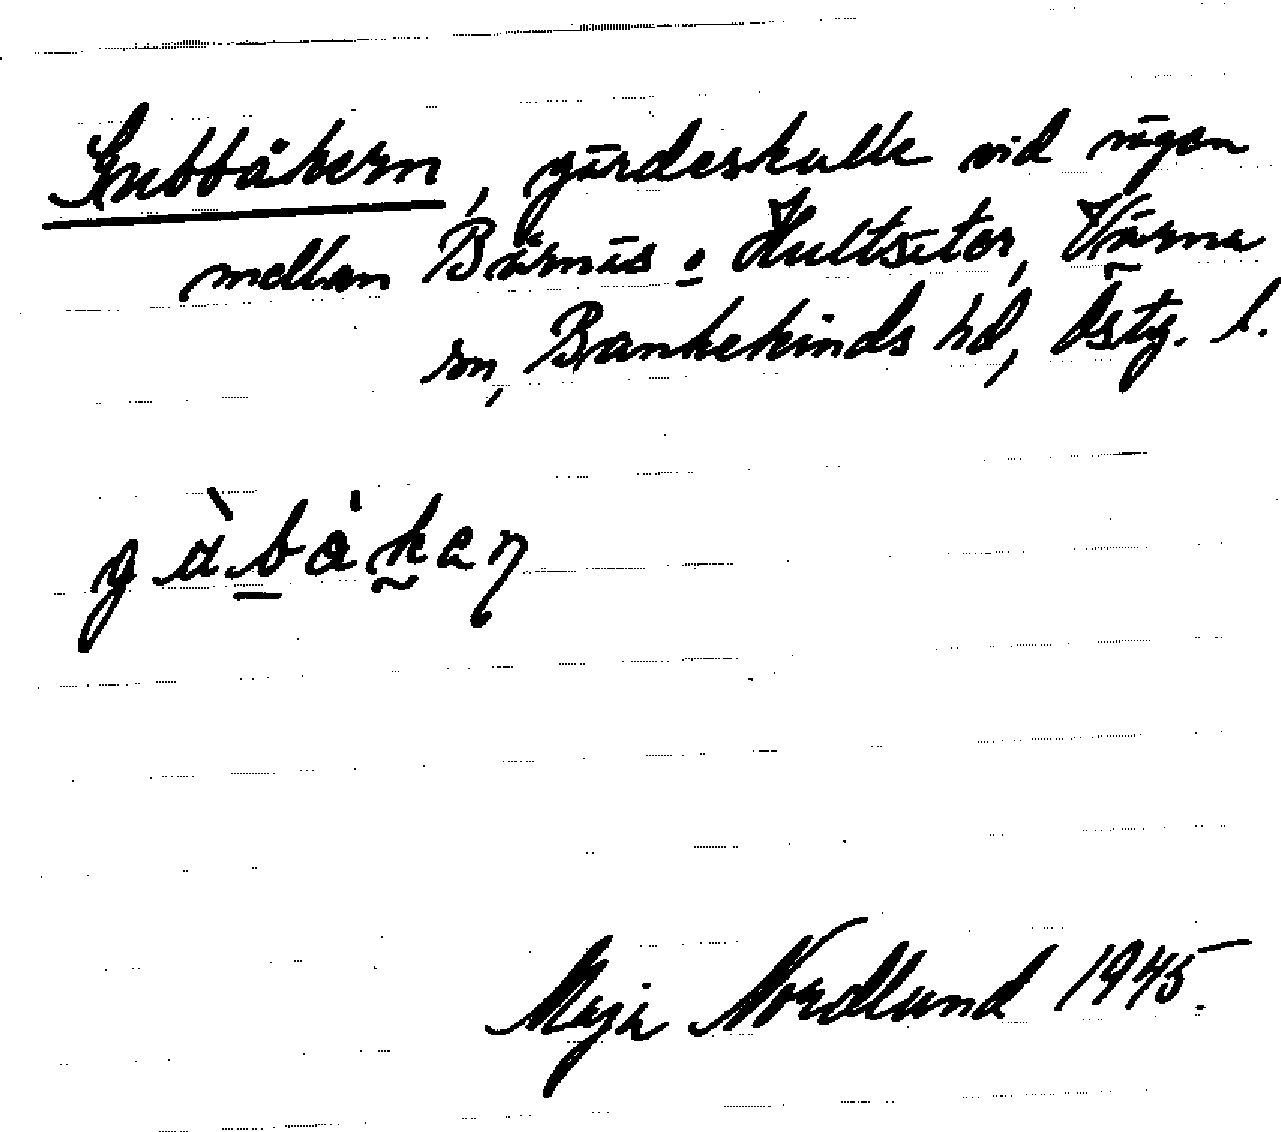 Gubbåkern, gärdeskulle vid vägen
mellan Bärnäs o. Hultsäter, Värna
sn, Bankekinds hd, Östg. l.
Maja Nordlund 1945.